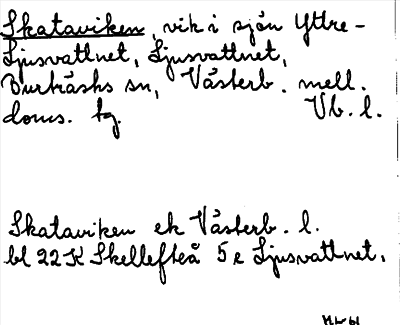 Skataviken, vik i sjön Yttre-
Ljusvattnet, Ljusvattnet,
Burträsks sn, Västerb. mell.
doms. tg. Vb. l.
Skataviken ek Västerb. l.
bl 22 K Skellefteå 5 e Ljusvattnet.